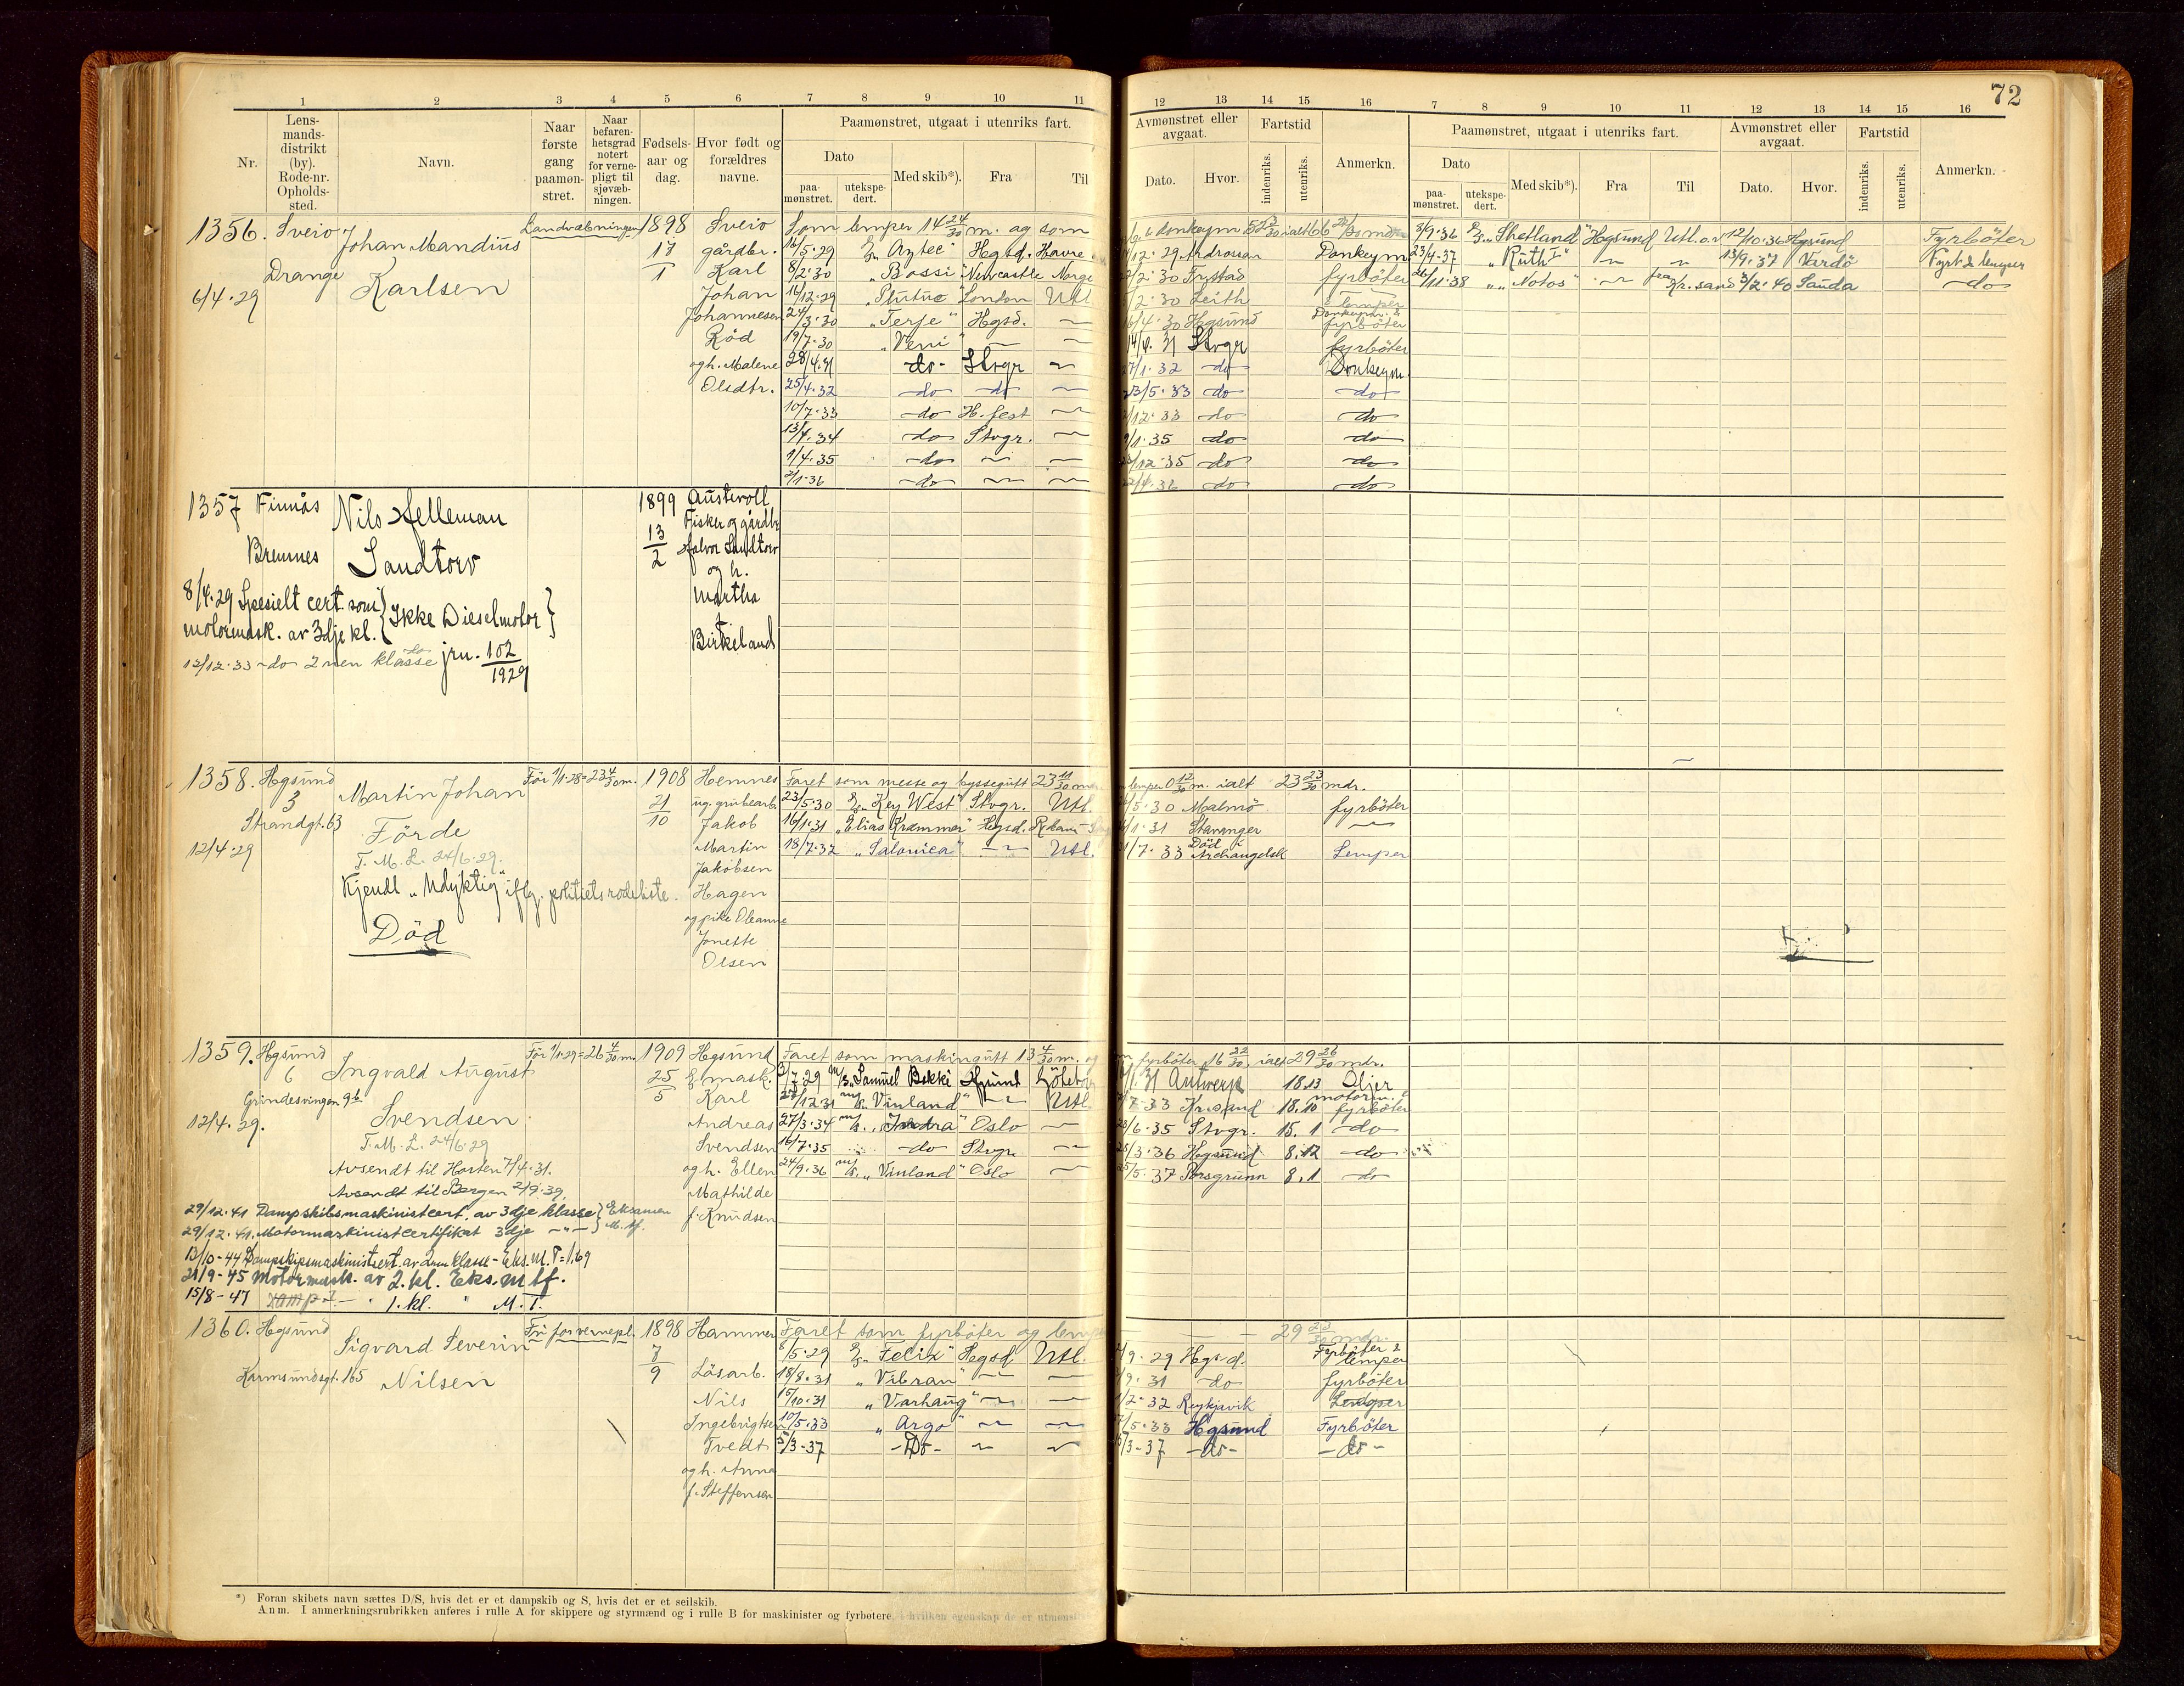 72
1 2 3 4 5 6 7 8 9 10 11 12 13 14 15 16 7 8 9 10 11 12 13 14 15 16
Nr.
Lens-
mands-
distrikt
(by).
Rode-nr.
Opholds-
sted.
Navn.
Naar
første
gang
paamøn-
stret.
Naar
befaren-
hetsgrad
notert
for verne-
pligt til
sjøvæb-
ningen.
Fødsels-
aar og
dag.
Hvor født og
forældres
navne.
Paamønstret, utgaat i utenriks fart.
Dato
paa-
mønstret.
utekspe-
dert.
Med skib*).
Fra
Til
Avmønstret eller
avgaat.
Dato.
Hvor.
Fartstid
indenriks.
utenriks.
Anmerkn.
Paamønstret, utgaat i utenriks fart.
Dato
paa-
mønstret.
utekspe-
dert.
Med skib*).
Fra
Til
Avmønstret eller
avgaat.
Dato.
Hvor.
Fartstid
indenriks.
utenriks.
Anmerkn.
1356. Sveio Johan Mandius Landvæbningen 1898 Sveio
Drange Karlsen 17/1 gårdbr.
6/4·29 Karl
Johan
Johannesen
Röd
og h. Malene
Olsdtr.
Som lemper 14 24/30 m. og som donkeym
16/5·29 "Aztec" Hegsd. Havre 12·29 Ardrossan Donkeym
8/2·30 "Bossi" Newcastle Norge 2·30 Frystad fyrböter
14/12·29 London Utl. 2·30 Leith & lemper
24/3·30 "Terje" Hgsd. 6/4·30 Hgsund Donkeym. & fyrböter
19/7·30 "Veni" 14/4·31 Stvgr fyrböter
28/4·31 do Stvgr 1·32 do Donkeym.
25/4·32 do do 23/5·33 do do
10/7·33 do H.fest 12·33 do do
13/4·34 do Stvgr. 1·35 do do
1/4·35 do 12·35 do do
2/1·36 do 4·36 do do
5/9·36 "Shetland" Hgsund Utl. 12/10·36 Hgsund Fyrböter
23/4·37 "Ruth I" 13/9·37 Vardö Fyrb & lemper
26/11·38 "Notos" fra Kr.sand 3/2·40 Sauda do
1357 Finnås Nils Helleman 1899 Austevoll
Bremnes Sandtorv 13/2 Fisker og gårdbr
Halvor Sandtorv
og h.
Martha
f.
Birkeland
8/4·29 Spesielt cert. som
motormask. av 3dje kl. Ikke Dieselmotor
12/12·33 do 2nen klasse do jrn. 102/1929
1358. Hgsund Martin Johan Før 1/1·28=23 4/30 m. 1908 Hemnes
3 Förde 21/10 ug. grubearb.
Strandgt. 63 Jakob
12/4·29 T. M. L. 24/6·29. Martin
Kjendt "Udyktig" iflg. politiets rodeliste. Jakobsen
Død Hagen
og pike Oleanne
Jonette
Olsen
Faret som messe og byssegutt 23 11/30 m lemper 0 12/30 m. ialt 23 23/30 mdr.
23/5·30 "Key West" Stvgr. Utl. 5·30 Malmö fyrböter
16/1·31 "Elias Kræmmer" Hgsd. 1·31 Stavanger
18/7·32 "Salonica" Utl. 1/7·33 Död i Archangelsk Lemper
1359. Hgsund Ingvald August Før 1/1·29=26 4/30 m. 1909 Hgsund
6 Svendsen 25/5 mask.
Grindesvingen 9b Karl
12/4·29. T. M. L. 24/6·29 Andreas
Avsendt til Horten 7/4·31. Svendsen
Avsendt til Bergen 2/9·39. og h. Ellen
Mathilde
f. Knudsen
29/12·41 Dampskibsmaskinistcert. av 3dje klasse Eksamen
29/12·41. Motormaskinistcertifikat 3dje M. tf.
13/10-44 Dampskipsmaskinistcert. av 2nen klasse - Eks. M. T = 1,69
21/9-45 Motormask. av 2. kl. Eks. M tf.
15/8-47 1. kl. " M. T.
Faret som maskingutt 13 4/30 m. og fyrböter 16 22/30, ialt 29 26/30 mdr.
7·29 "Samuel Bakke" Hgsund Göteborg 1·31 Antwerp 18.13 Oljer
12·31 "Vinland" Utl. 7·33 Kr.sand 18.10 motorm. & fyrböter
27/3·34 "Indra" Oslo 6·35 Stvgr. 15.1 do
16/7·35 do Stvgr. 3·36 Hgsund 8.12 do
24/9·36 "Vinland" Oslo 5·37 Porsgrunn 8.1 do
1360. Hgsund Sigvard Severin Fri for vernepl. 1898 Hammer
Karmsundsgt. 165 Nilsen 7/9 Løsarb.
Nils
Ingebrigtsen
Tvedt
og h. Anna
f. Steffensen
Faret som fyrböter og lemper 29 23/30 mdr.
8/5·29 "Felix" Hegsd Utl. 9·29 Hgsd. Fyrböter & lemper
18/8·31 "Vibran" 9·31 do fyrböter
15/10·31 "Varhaug" 1/2·32 Reykjavik Lemper
10/5·33 "Argo" 7/5·33 Hgsund Fyrböter
5/3-37 -Do- 3-37 -do- -do-
*) Foran skibets navn sættes D/S, hvis det er et dampskib og S, hvis det er et seilskib.
Anm. I anmerkningsrubrikken anføres i rulle A for skippere og styrmænd og i rulle B for maskinister og fyrbøtere, i hvilken egenskap de er utmønst